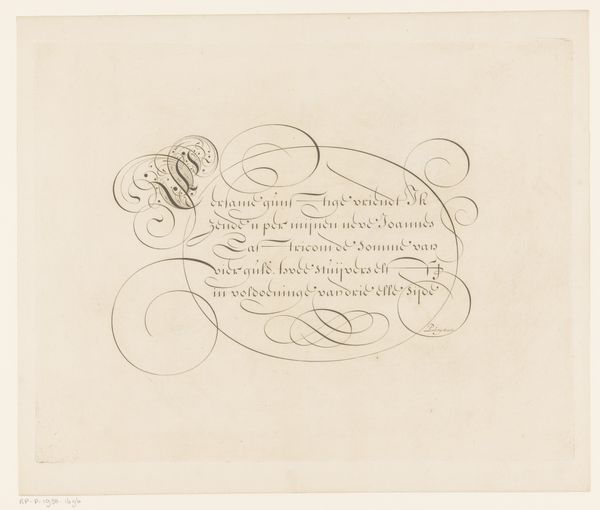 Eersame gunstige vriendt Ik
zende u per mijnen neve Joannes
Castricom de somme van
vier guld. twee stuijvers elf
in voldoeninge van drie elle zijde
RP-P-1958-1696